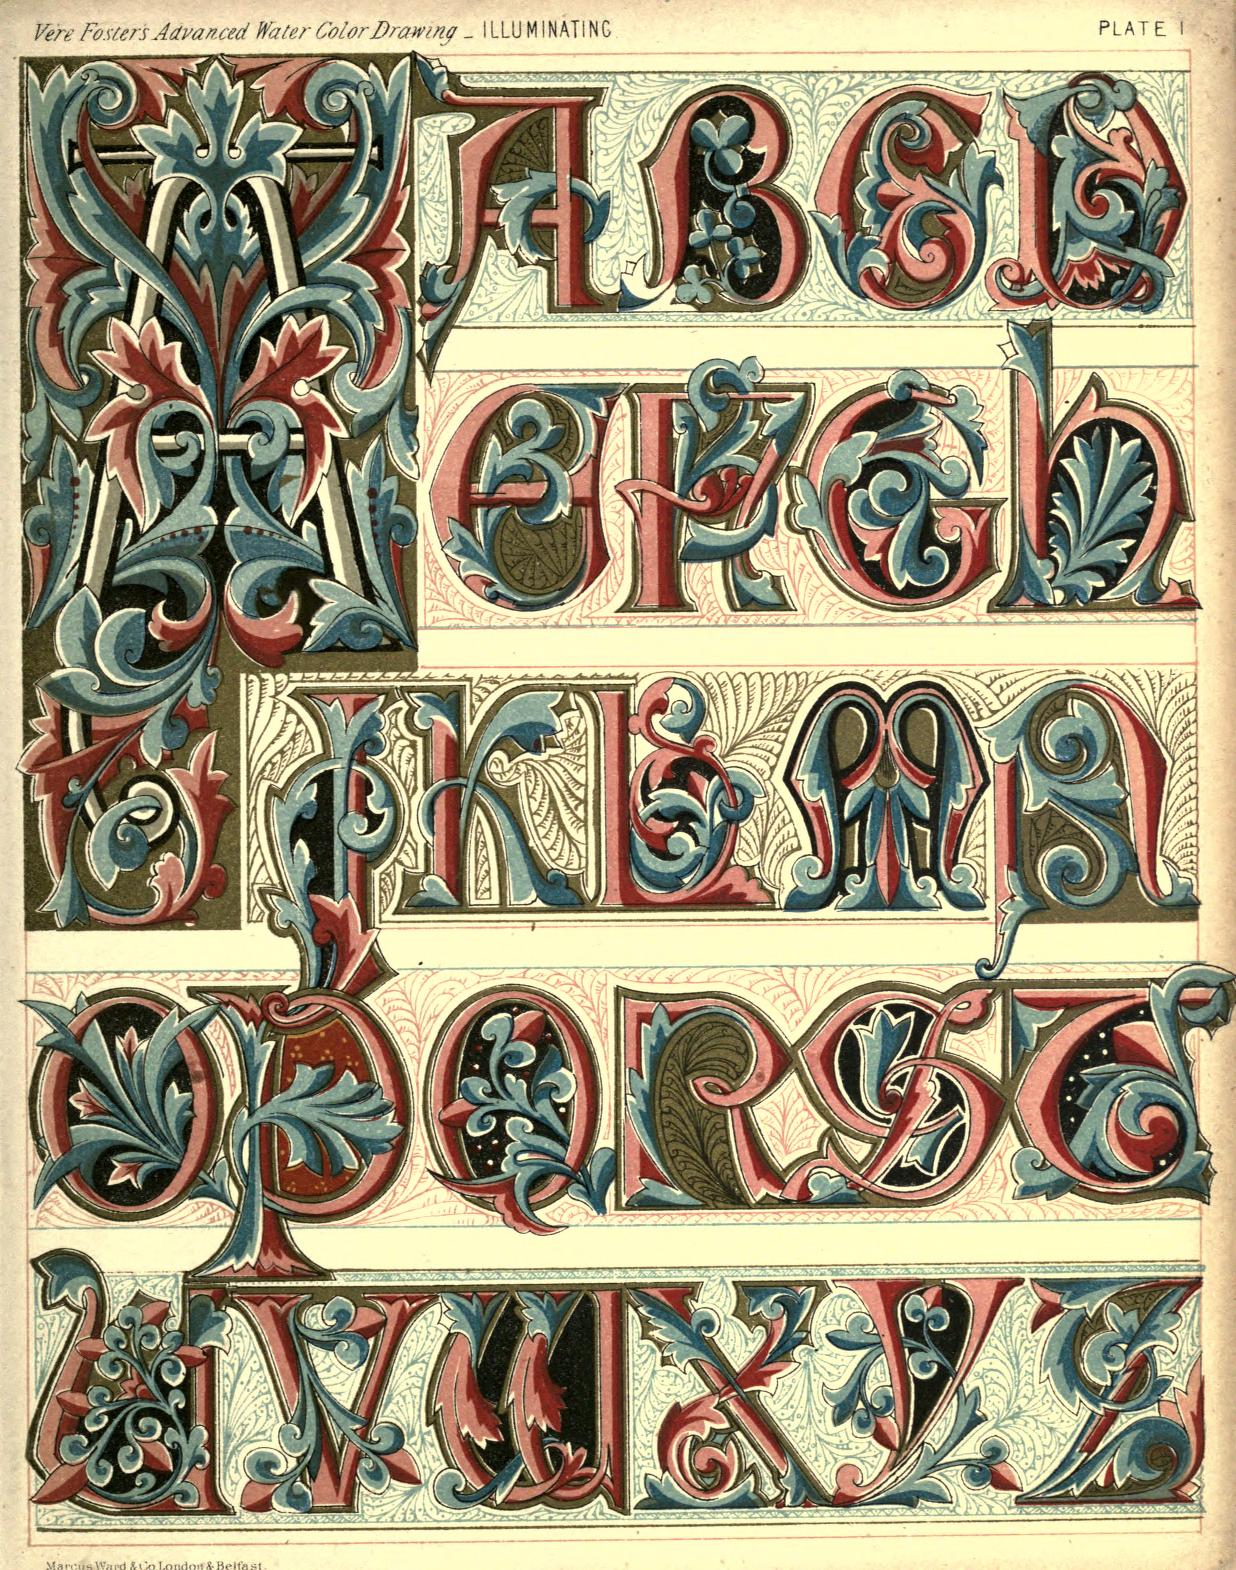 Vere Foster's Advanced Water Color Drawing _ ILLUMINATING
PLATE I
A
A B C D
E F G h
I K L M N
O P Q R S T
U V W X Y Z
Marcus Ward & Co London & Belfast.